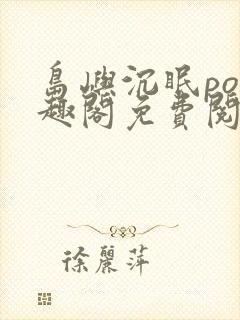 島嶼沉眠po
趣閣免費閱
徐麗萍